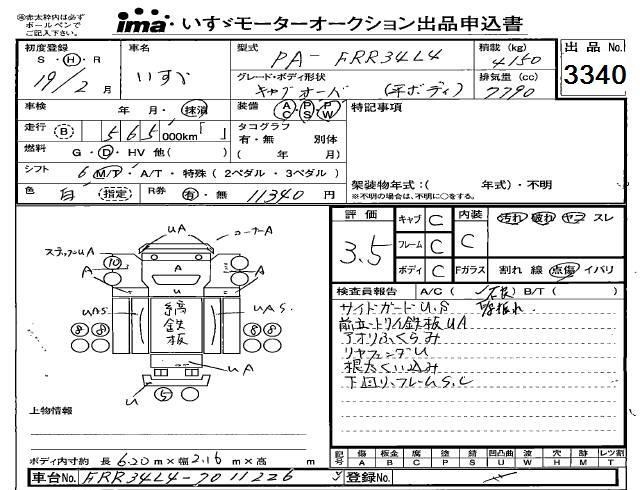 ㊟赤太枠内は必ず
ボールペンで
ご記入下さい。
ima いすゞモーターオークション出品申込書
初度登録
S・H・R
19/2月
車名
いすゞ
型式
PA-FRR34L4
積載(kg)
4150
出品No.
3340
グレード・ボディ形状
キャブオーバ (平ボディ)
排気量(cc)
7790
車検
年 月・抹消
装備
AC PS PW
特記事項
走行 (B)
565,000km「 」
タコグラフ
有・無 別体
( 年 月)
燃料
G・D・HV 他( )
シフト
6 M/T・A/T・特殊(2ペダル・3ペダル)
架装物年式:( 年式)・不明
※不明の場合は、不明に○をする。
色
白 指定
R券
有・無 11340円
評価
3.5
キャブ C
フレーム C
ボディ C
内装
C
汚れ 破れ ヤコ スレ
Fガラス
割れ 線 点傷 イバリ
検査員報告
A/C( ) B/T( )
サイドガードU,S
前立・トリイ鉄板UA
アオリふくらみ
リヤフェンダU
根太くい込み
下回り、フレームS,C
UA
コーナーA
ステップUA
10
A
A
A
U
UAS
縞鉄板
UAS
8 8
8 8
UA
U
5
上物情報
ボディ内寸約 長6.20m×幅2.16m×高 m
記号
傷 A
板金 B
腐 C
塗 P
錆 S
凹凸曲 U
波 W
穴 H
跡 M
レツ割 T
車台No.
FRR34L4-7011226
登録No.